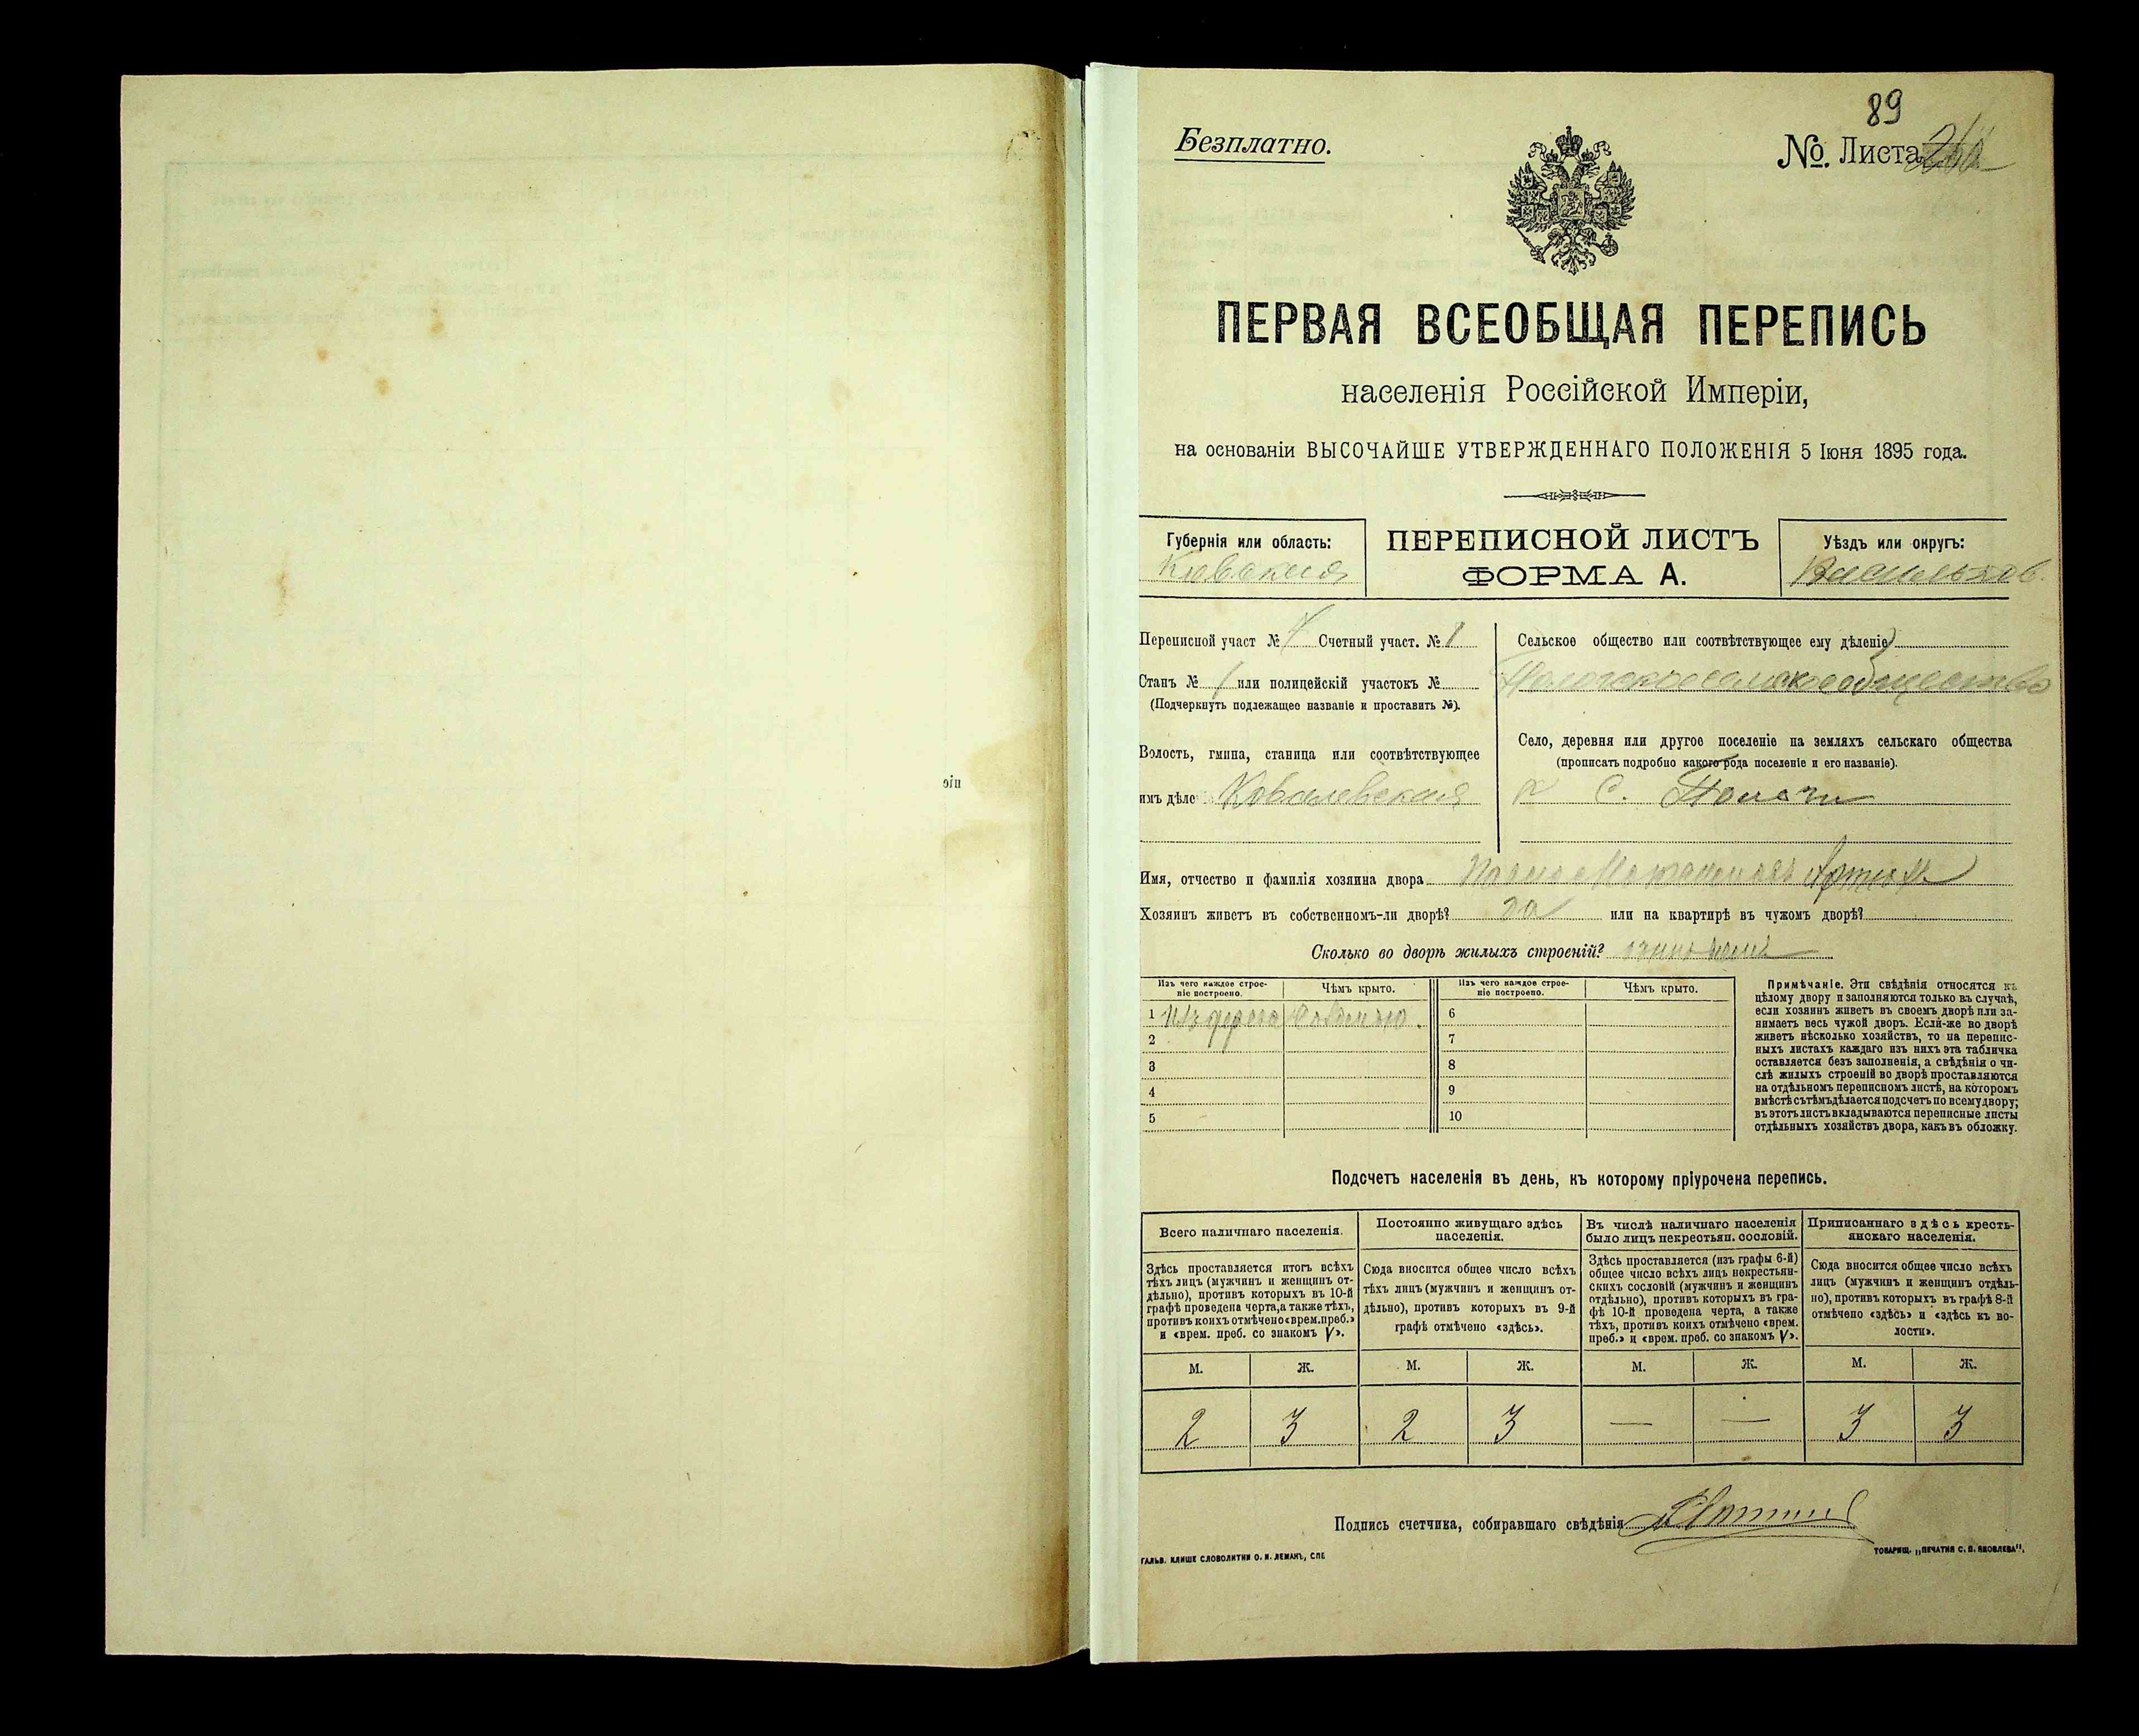 89
Безплатно.
№. Листа
ПЕРВАЯ ВСЕОБЩАЯ ПЕРЕПИСЬ
населенія Россійской Имперіи,
на основаніи ВЫСОЧАЙШЕ УТВЕРЖДЕННАГО ПОЛОЖЕНІЯ 5 Іюня 1895 года.
Губернія или область:
Кіевская
ПЕРЕПИСНОЙ ЛИСТЪ
ФОРМА А.
Уѣздъ или округъ:
Васильков.
Переписной участ № Счетный участ. № 1
Станъ № 1 или полицейскій участокъ №
(Подчеркнуть подлежащее названіе и проставить №).
Волость, гмина, станица или соотвѣтствующее
имъ дѣле Ковалевская
Сельское общество или соотвѣтствующее ему дѣленіе
общество
Село, деревня или другое поселеніе на земляхъ сельскаго общества
(прописать подробно какого рода поселеніе и его названіе).
С. Пологи
Имя, отчество и фамилія хозяина двора
Хозяинъ живетъ въ собственномъ-ли дворѣ? да или на квартирѣ въ чужомъ дворѣ?
Сколько во дворѣ жилыхъ строеній?
Изъ чего каждое строе-
ніе построено.
Чѣмъ крыто.
Изъ чего каждое строе-
ніе построено.
Чѣмъ крыто.
1 Изъ дерева Соломою. 6
2 7
3 8
4 9
5 10
Примѣчаніе. Эти свѣдѣнія относятся къ
цѣлому двору и заполняются только въ случаѣ,
если хозяинъ живетъ въ своемъ дворѣ или за-
нимаетъ весь чужой дворъ. Если-же во дворѣ
живетъ нѣсколько хозяйствъ, то на перепис-
ныхъ листахъ каждаго изъ нихъ эта табличка
оставляется безъ заполненія, а свѣдѣнія о чи-
слѣ жилыхъ строеній во дворѣ проставляются
на отдѣльномъ переписномъ листѣ, на которомъ
вмѣстѣ съ тѣмъ дѣлается подсчетъ по всему двору;
въ этотъ листъ вкладываются переписные листы
отдѣльныхъ хозяйствъ двора, какъ въ обложку.
Подсчетъ населенія въ день, къ которому пріурочена перепись.
Всего наличнаго населенія.
Здѣсь проставляется итогъ всѣхъ
тѣхъ лицъ (мужчинъ и женщинъ от-
дѣльно), противъ которыхъ въ 10-й
графѣ проведена черта, а также тѣхъ,
противъ коихъ отмѣчено «врем. преб.»
и «врем. преб. со знакомъ V».
Постоянно живущаго здѣсь
населенія.
Сюда вносится общее число всѣхъ
тѣхъ лицъ (мужчинъ и женщинъ от-
дѣльно), противъ которыхъ въ 9-й
графѣ отмѣчено «здѣсь».
Въ числѣ наличнаго населенія
было лицъ некрестьян. сословій.
Здѣсь проставляется (изъ графы 6-й)
общее число всѣхъ лицъ некрестьян-
скихъ сословій (мужчинъ и женщинъ
отдѣльно), противъ которыхъ въ гра-
фѣ 10-й проведена черта, а также
тѣхъ, противъ коихъ отмѣчено «врем.
преб.» и «врем. преб. со знакомъ V».
Приписаннаго здѣсь кресть-
янскаго населенія.
Сюда вносится общее число всѣхъ
лицъ (мужчинъ и женщинъ отдѣль-
но), противъ которыхъ въ графѣ 8-й
отмѣчено «здѣсь» и «здѣсь къ во-
лости».
М. Ж. М. Ж. М. Ж. М. Ж.
2 3 2 3 — — 3 3
Подпись счетчика, собиравшаго свѣдѣнія
ГАЛЬВ. КЛИШЕ СЛОВОЛИТНИ О. И. ЛЕМАНЪ, СПБ.
ТОВАРИЩ. „ПЕЧАТНЯ С. П. ЯКОВЛЕВА".